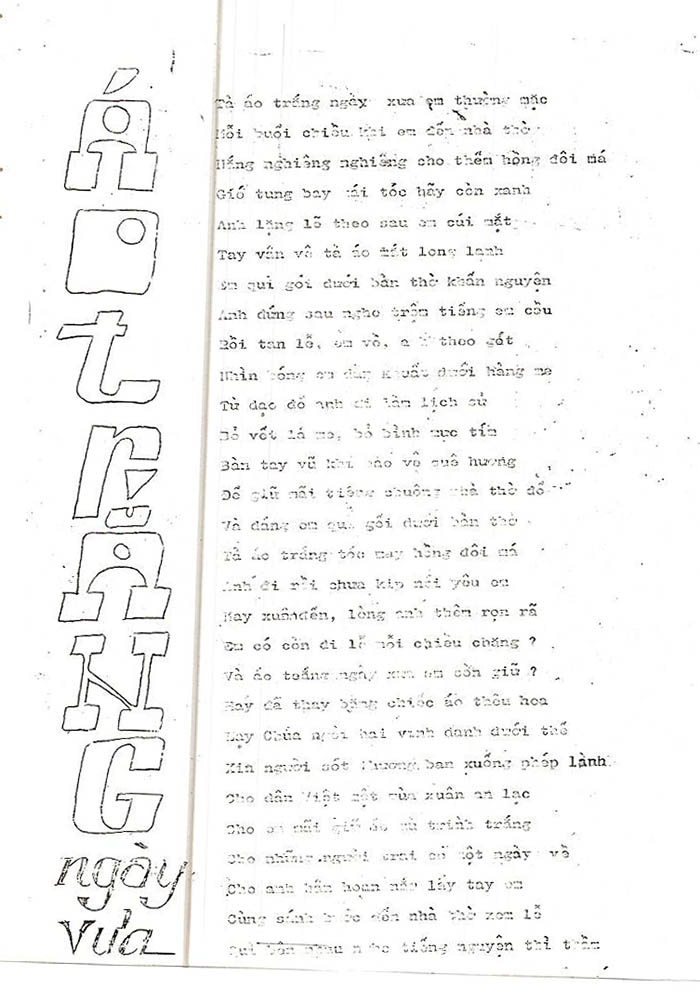 ÁO
tRẮNG
ngày
xưa
Tà áo trắng ngày xưa em thường mặc
Mỗi buổi chiều khi em đến nhà thờ
Nắng nghiêng nghiêng cho thếm hồng đôi má
Gió tung bay mái tóc hãy còn xanh
Anh lặng lẽ theo sau em cúi mặt
Tay vân vê tà áo mắt long lanh
Em quì gói dưới bàn thờ khấn nguyện
Anh đứng sau nghe trộm tiếng em cầu
Rồi tan lễ, em về, theo gót
Nhìn bóng em dần khuất dưới hàng me
Từ dạo đó anh đi làm lịch sử
Bỏ vết lá me, bỏ bình mực tím
Bàn tay vũ khí bảo vệ quê hương
Để giữ mãi tiếng chuông nhà thờ đổ
Và dáng em quì gối dưới bàn thờ
Tà áo trắng tóc may hồng đôi má
Anh đi rồi chưa kịp nói yêu em
Nay xuân đến, lòng anh thêm rọn rã
Em có còn đi lễ mỗi chiều chăng ?
Và áo toắng ngày xưa em còn giữ ?
Hay đã thay bằng chiếc áo thêu hoa
Lạy Chúa ngôi hai vinh danh dưới thế
Xin người sót thương ban xuống phép lành
Cho dân Việt một mùa xuân an lạc
Cho em mãi giữ áo trắng
Cho những người trai có một ngày về
Cho anh hân hoan nắm lấy tay em
Cùng sánh bước đến nhà thờ xem lễ
Quì bên nhau nghe tiếng nguyện thì thầm